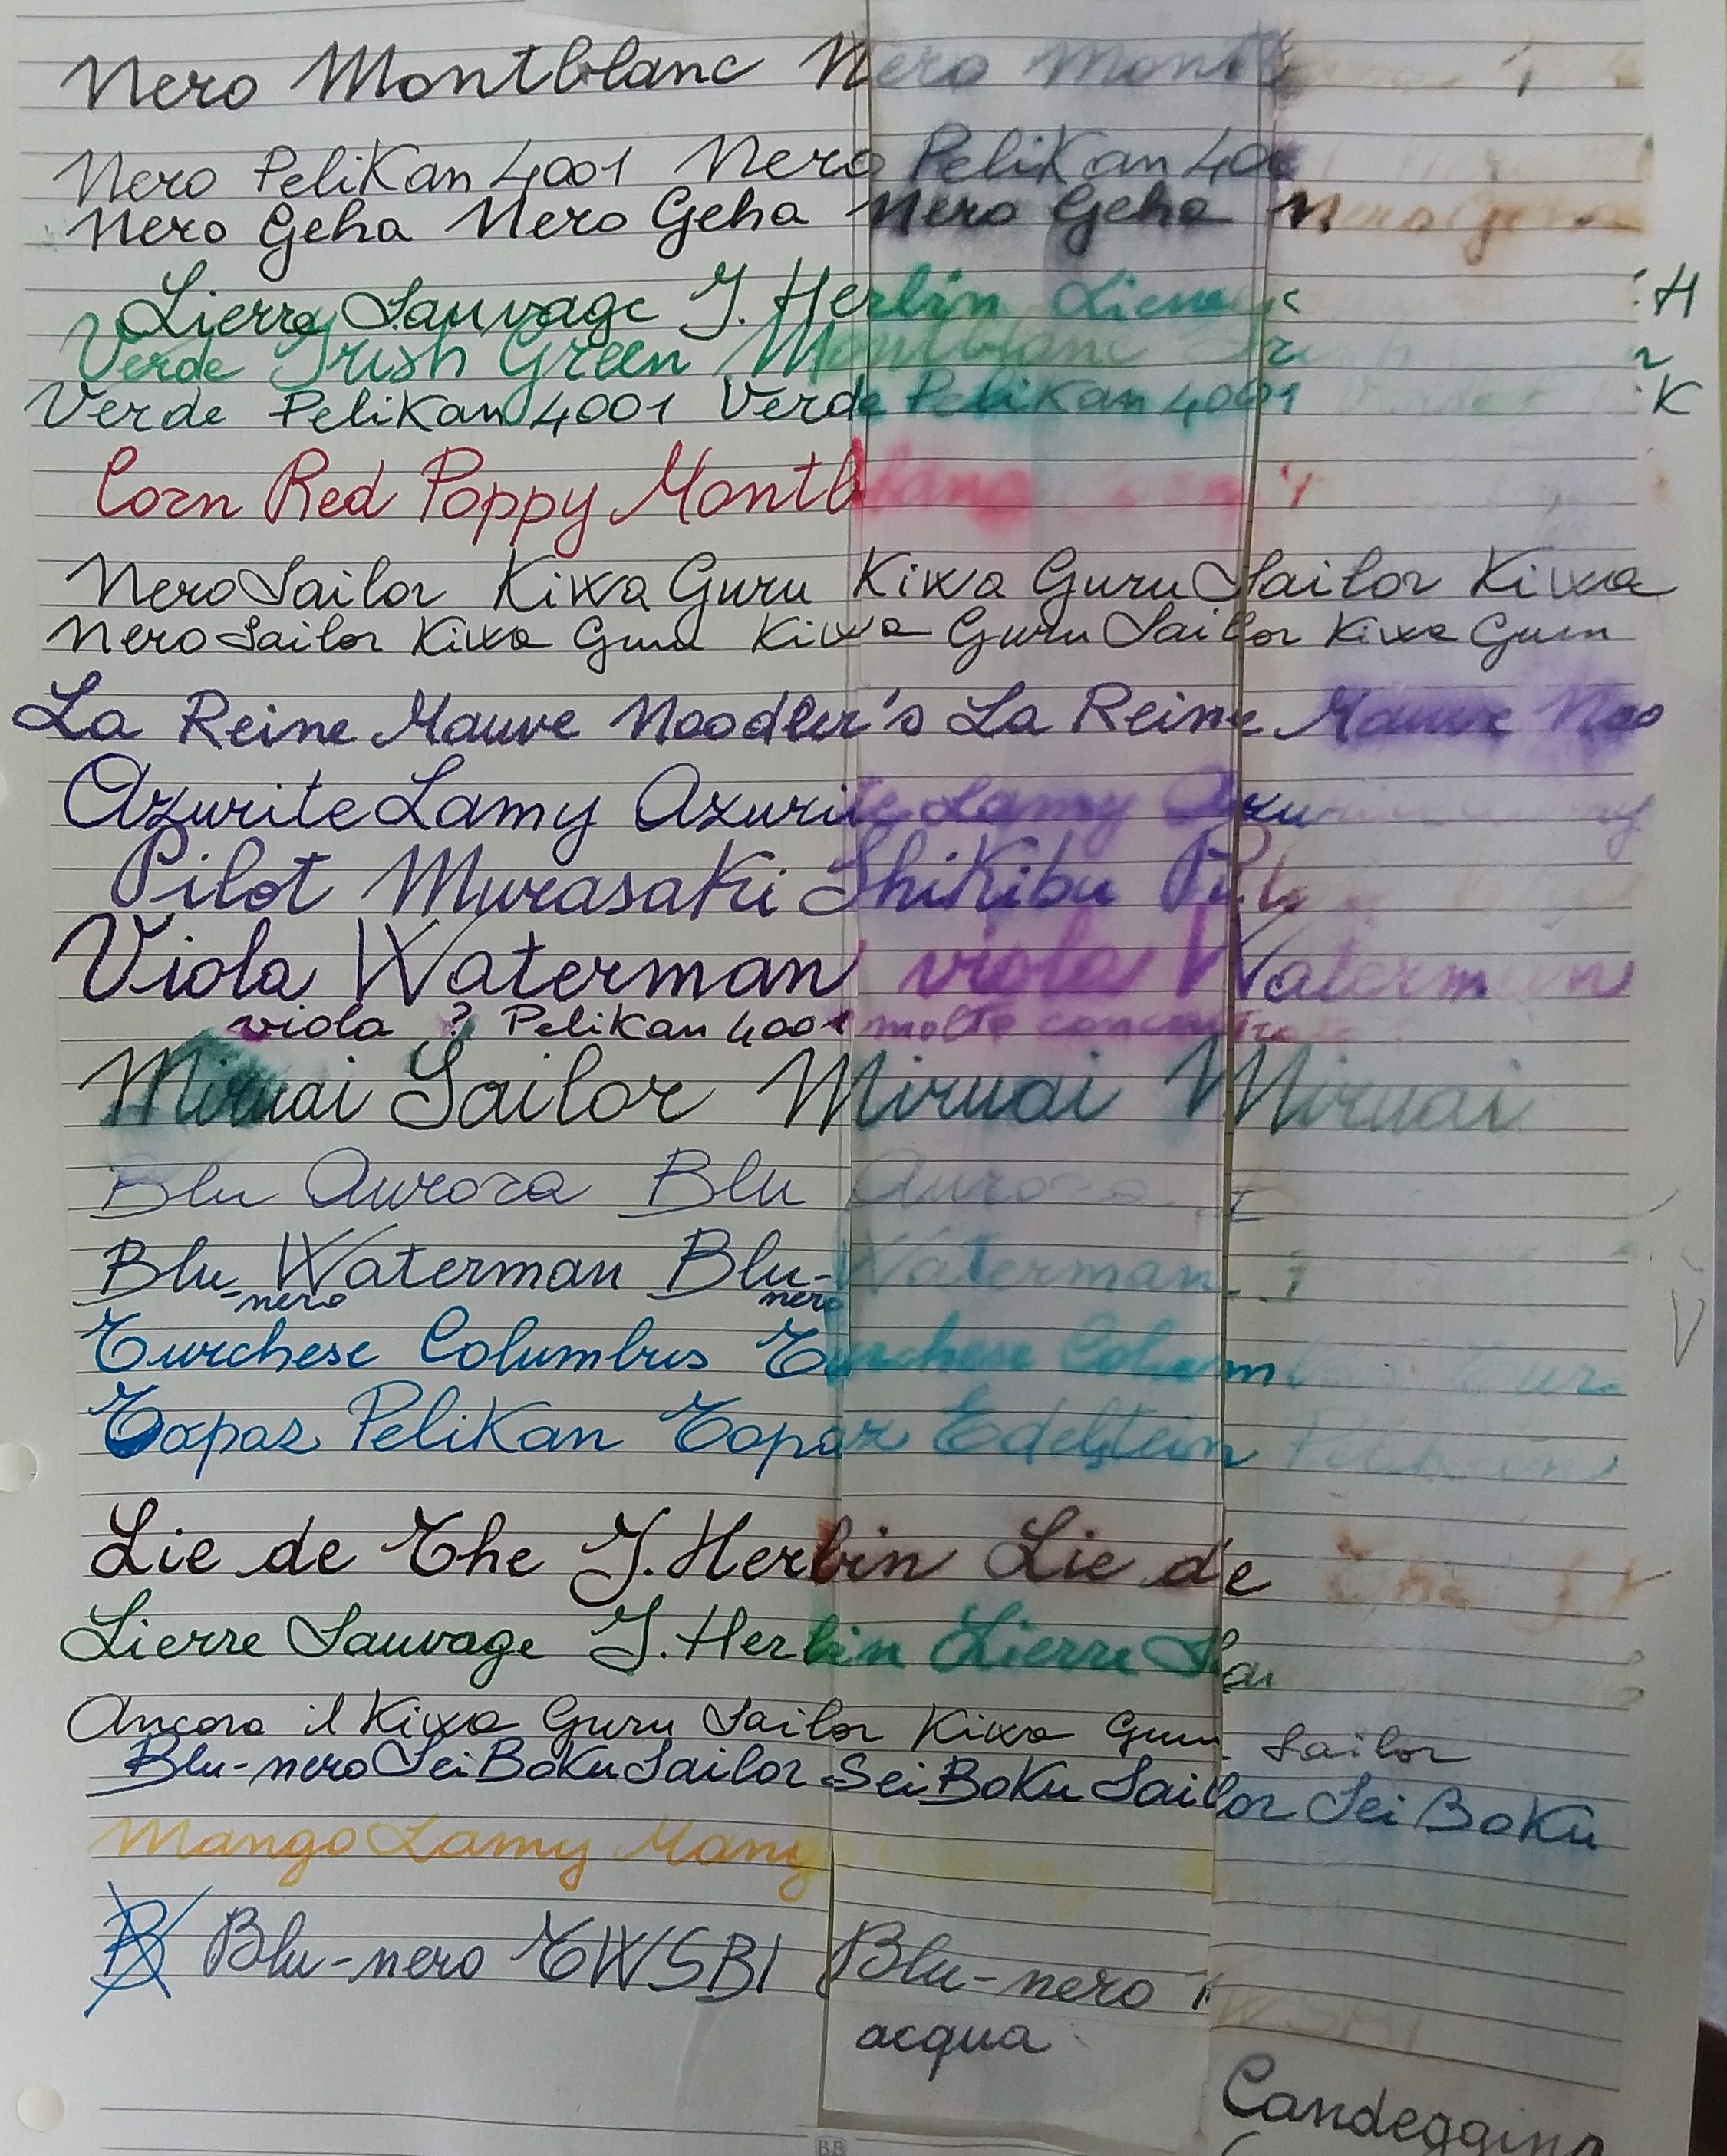 Nero Montblanc Nero Mont
Nero Pelikan 4001 Nero Pelikan 400
Nero Geha Nero Geha Nero Geha N Nero Geha
Lierre Sauvage J. Herbin Lierre H
Verde Irish Green Montblanc Irish
Verde Pelikan 4001 Verde Pelikan 4001 K
Corn Red Poppy Montblanc
Nero Sailor Kiwa Guru Kiwa Guru Sailor Kiwa
Nero Sailor Kiwa Guru Kiwa Guru Sailor Kiwa Guru
La Reine Mauve Noodler's La Reine Mauve Noo
Azurite Lamy Azurite Lamy Azu
Pilot Murasaki Shikibu Pilo
Viola Waterman viola Waterman
viola ? Pelikan 4001 molto concentrato
Miruai Sailor Miruai Miruai
Blu Aurora Blu Aurora
Blu-nero Waterman Blu-nero Waterman
Turchese Columbus Turchese Columbus Tur
Topaz Pelikan Topaz Edelstein Pelikan
Lie de The J. Herbin Lie de The J. H
Lierre Sauvage J. Herbin Lierre Sau
Ancora il Kiwa Guru Sailor Kiwa Guru Sailor
Blu-nero Sei Boku Sailor Sei Boku Sailor Sei Boku
Mango Lamy Mang
B Blu-nero TWSBI Blu-nero TWSBI
acqua
Candeggina
BB